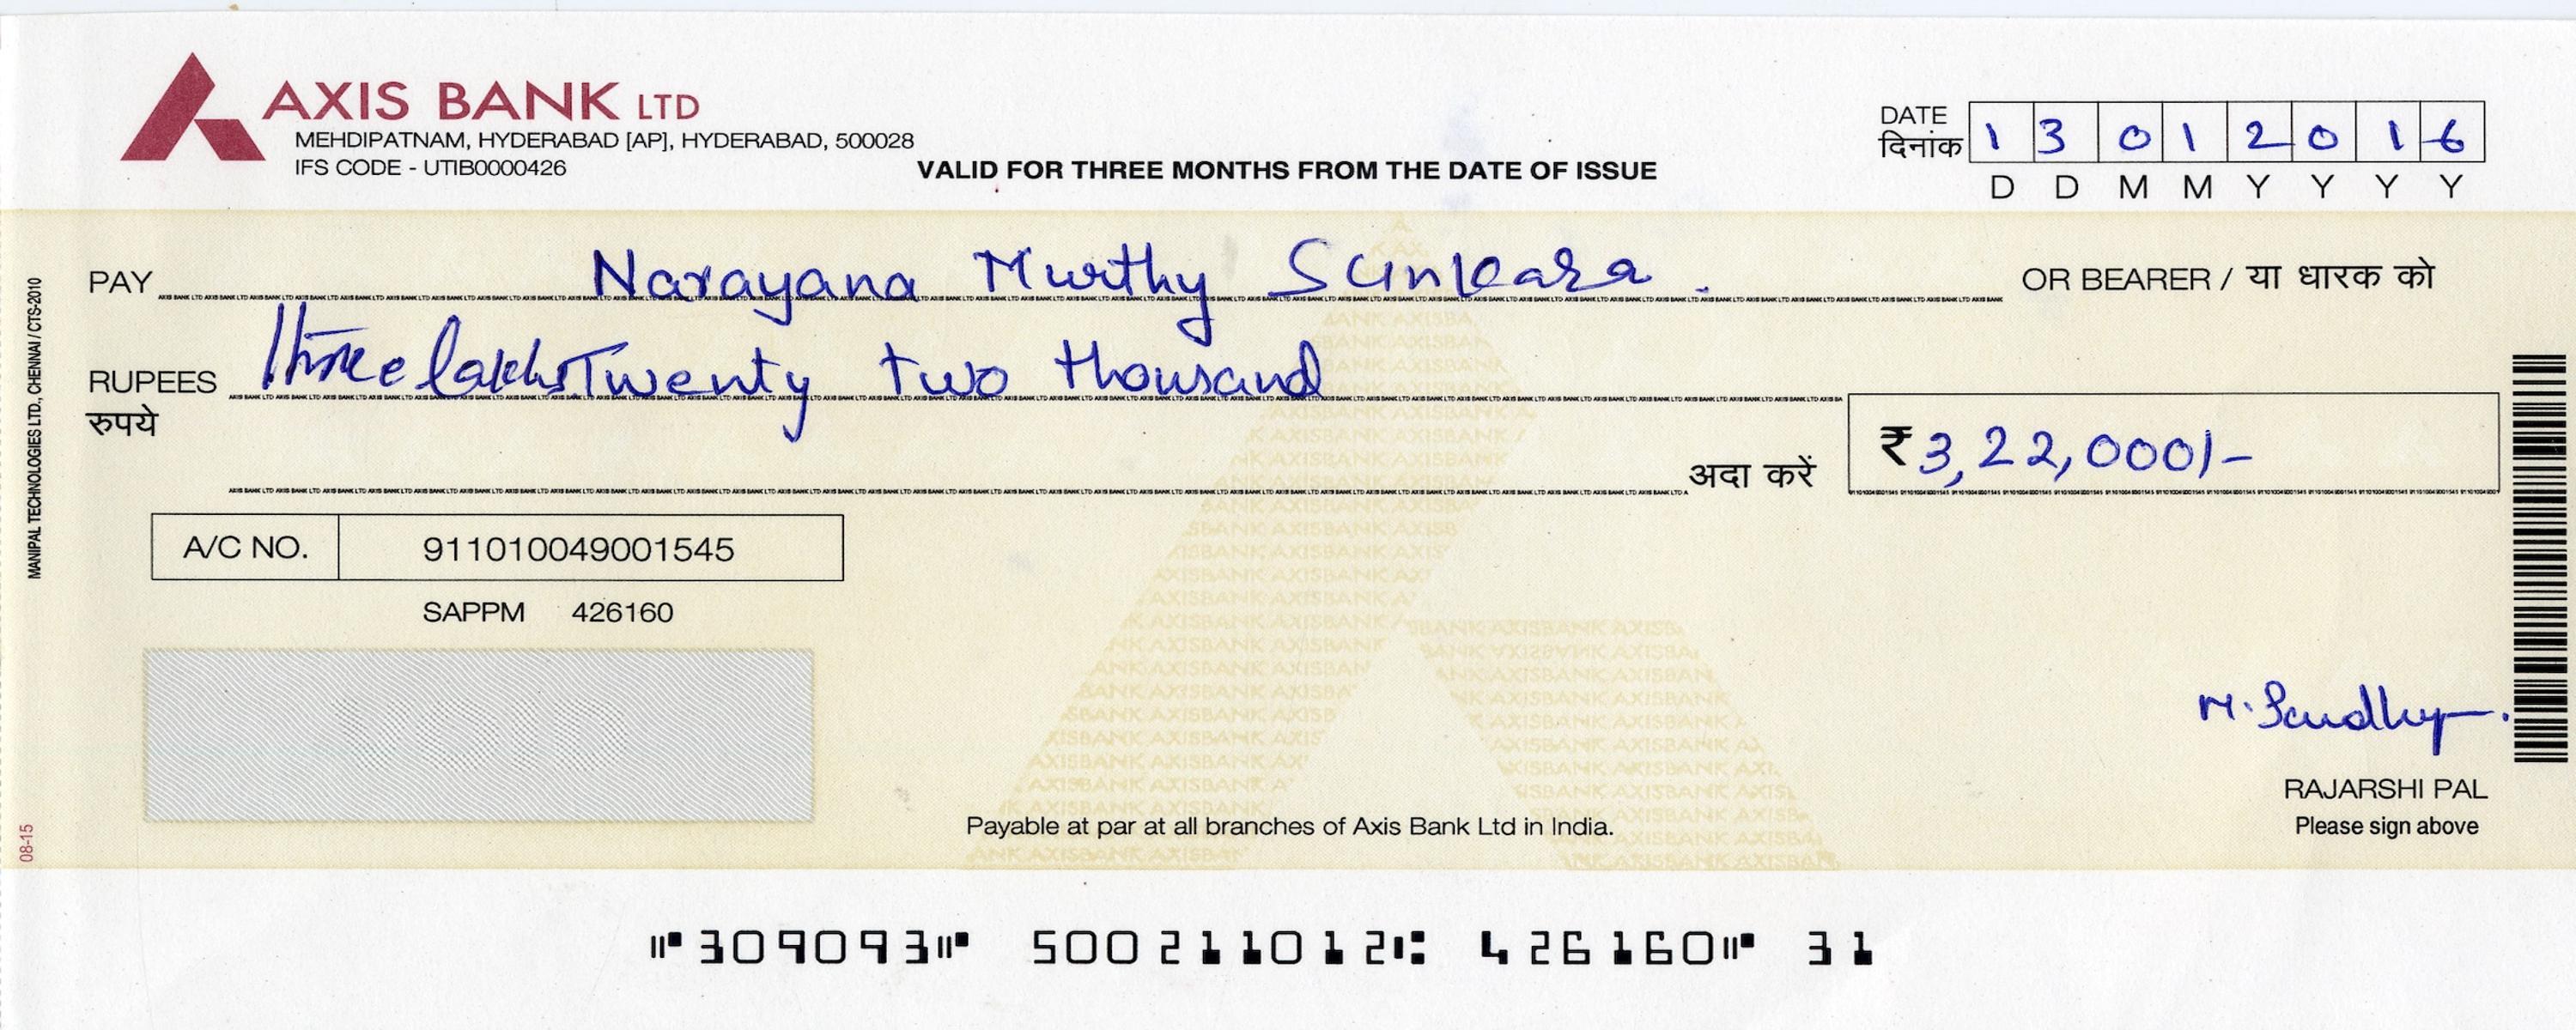 AXIS BANK LTD
MEHDIPATNAM, HYDERABAD [AP], HYDERABAD, 500028
IFS CODE - UTIB0000426
VALID FOR THREE MONTHS FROM THE DATE OF ISSUE
DATE
दिनांक
1 3 0 1 2 0 1 6
D D M M Y Y Y Y
PAY Narayana Murthy Sunkara . OR BEARER / या धारक को
RUPEES Three lakhs Twenty two thousand
रुपये
अदा करें ₹ 3,22,000/-
A/C NO. 911010049001545
SAPPM 426160
M. Sandhya
RAJARSHI PAL
Please sign above
Payable at par at all branches of Axis Bank Ltd in India.
MANIPAL TECHNOLOGIES LTD., CHENNAI / CTS-2010
08-15
⑈309093⑈ 500211012⑆ 426160⑈ 31